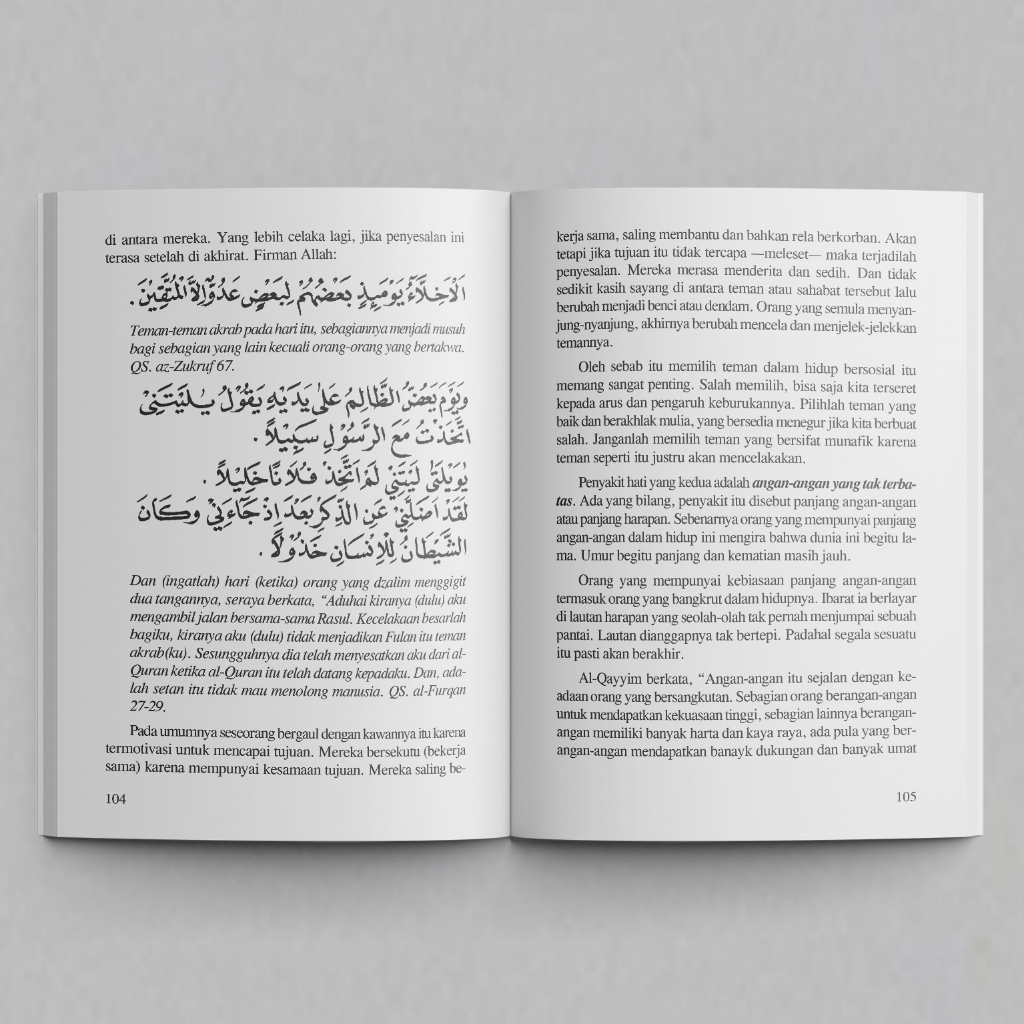 di antara mereka. Yang lebih celaka lagi, jika penyesalan ini
terasa setelah di akhirat. Firman Allah:
اَلْاَخِلَّاۤءُ يَوْمَىِٕذٍ بَعْضُهُمْ لِبَعْضٍ عَدُوٌّ اِلَّا الْمُتَّقِيْنَ .
Teman-teman akrab pada hari itu, sebagiannya menjadi musuh
bagi sebagian yang lain kecuali orang-orang yang bertakwa.
QS. az-Zukruf 67.
وَيَوْمَ يَعَضُّ الظَّالِمُ عَلٰى يَدَيْهِ يَقُوْلُ يٰلَيْتَنِى
اتَّخَذْتُ مَعَ الرَّسُوْلِ سَبِيْلاً .
يٰوَيْلَتٰى لَيْتَنِيْ لَمْ اَتَّخِذْ فُلَانًا خَلِيْلاً .
لَقَدْ اَضَلَّنِيْ عَنِ الذِّكْرِ بَعْدَ اِذْ جَاۤءَنِيْ وَكَانَ
الشَّيْطَانُ لِلْاِنْسَانِ خَذُوْلاً .
Dan (ingatlah) hari (ketika) orang yang dzalim menggigit
dua tangannya, seraya berkata, “Aduhai kiranya (dulu) aku
mengambil jalan bersama-sama Rasul. Kecelakaan besarlah
bagiku, kiranya aku (dulu) tidak menjadikan Fulan itu teman
akrab(ku). Sesungguhnya dia telah menyesatkan aku dari al-
Quran ketika al-Quran itu telah datang kepadaku. Dan, ada-
lah setan itu tidak mau menolong manusia. QS. al-Furqan
27-29.
Pada umumnya seseorang bergaul dengan kawannya itu karena
termotivasi untuk mencapai tujuan. Mereka bersekutu (bekerja
sama) karena mempunyai kesamaan tujuan. Mereka saling be-
104
kerja sama, saling membantu dan bahkan rela berkorban. Akan
tetapi jika tujuan itu tidak tercapa —meleset— maka terjadilah
penyesalan. Mereka merasa menderita dan sedih. Dan tidak
sedikit kasih sayang di antara teman atau sahabat tersebut lalu
berubah menjadi benci atau dendam. Orang yang semula menyan-
jung-nyanjung, akhirnya berubah mencela dan menjelek-jelekkan
temannya.
Oleh sebab itu memilih teman dalam hidup bersosial itu
memang sangat penting. Salah memilih, bisa saja kita terseret
kepada arus dan pengaruh keburukannya. Pilihlah teman yang
baik dan berakhlak mulia, yang bersedia menegur jika kita berbuat
salah. Janganlah memilih teman yang bersifat munafik karena
teman seperti itu justru akan mencelakakan.
Penyakit hati yang kedua adalah angan-angan yang tak terba-
tas. Ada yang bilang, penyakit itu disebut panjang angan-angan
atau panjang harapan. Sebenarnya orang yang mempunyai panjang
angan-angan dalam hidup ini mengira bahwa dunia ini begitu la-
ma. Umur begitu panjang dan kematian masih jauh.
Orang yang mempunyai kebiasaan panjang angan-angan
termasuk orang yang bangkrut dalam hidupnya. Ibarat ia berlayar
di lautan harapan yang seolah-olah tak pernah menjumpai sebuah
pantai. Lautan dianggapnya tak bertepi. Padahal segala sesuatu
itu pasti akan berakhir.
Al-Qayyim berkata, “Angan-angan itu sejalan dengan ke-
adaan orang yang bersangkutan. Sebagian orang berangan-angan
untuk mendapatkan kekuasaan tinggi, sebagian lainnya berangan-
angan memiliki banyak harta dan kaya raya, ada pula yang ber-
angan-angan mendapatkan banayk dukungan dan banyak umat
105